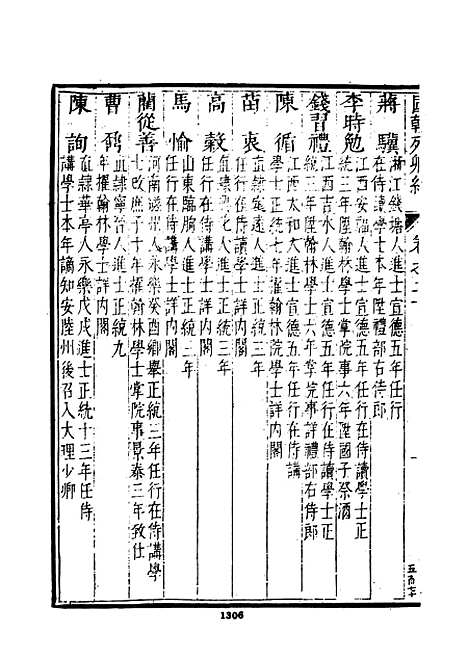 國朝列卿紀 卷之二十
蔣驥 浙江錢塘人進士宣德五年任行
在侍讀學士本年陞禮部右侍郎
李時勉 江西安福人進士宣德五年任行在侍讀學士正
統三年陞翰林學士掌院事六年陞國子祭酒
錢習禮 江西吉水人進士宣德五年任行在侍讀學士正
統三年陞翰林學士六年掌院事詳禮部右侍郎
陳循 江西太和人進士宣德五年任行在侍講
學士正統七年擢翰林院學士詳內閣
苗衷 直隸定遠人進士正統三年
任行在侍讀學士詳內閣
高穀 直隸興化人進士正統三年
任行在侍講學士詳內閣
馬愉 山東臨朐人進士正統三年
任行在侍講學士詳內閣
藺從善 河南磁州人永樂癸酉鄉舉正統三年任行在侍講學
士改庶子十年擢翰林學士掌院事景泰三年致仕
曹鼐 直隸寧晉人進士正統九
年擢翰林學士詳內閣
陳詢 直隸華亭人永樂戊戌進士正統十三年任侍
講學士本年謫知安陸州後召入大理少卿
五百七十
1306